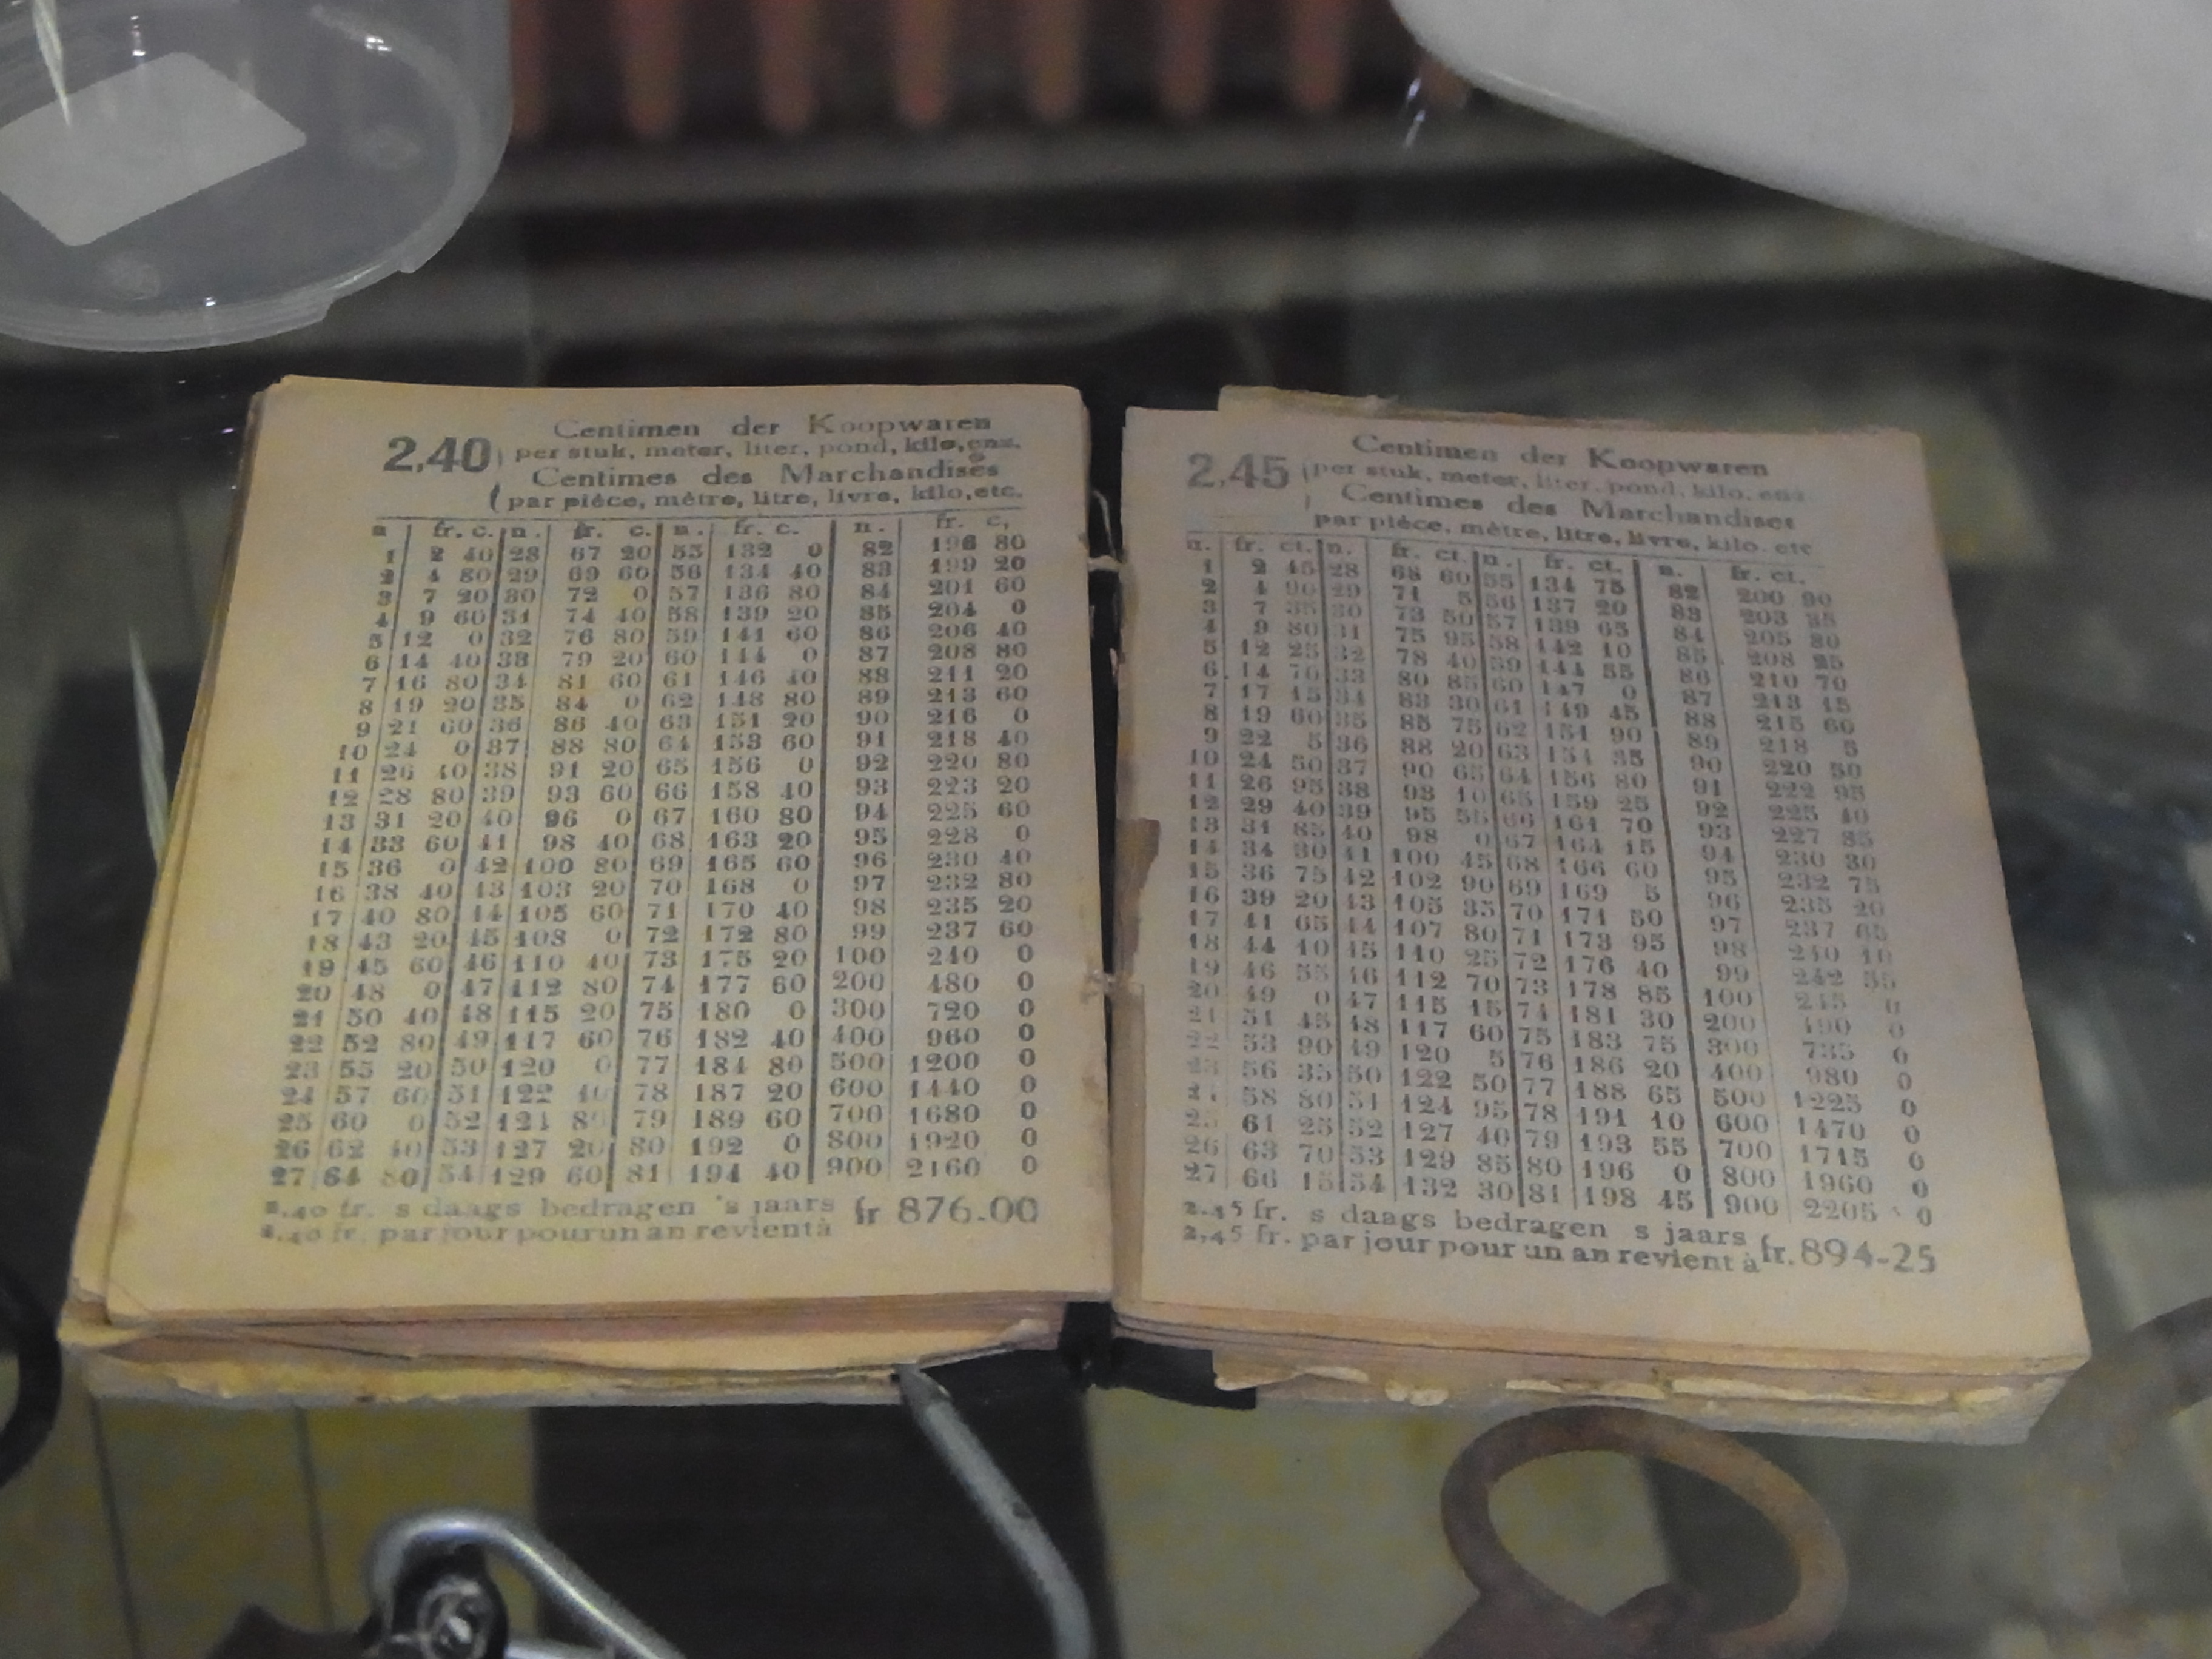 2,40 Centimen der Koopwaren
per stuk, meter, liter, pond, kilo, enz.
Centimes des Marchandises
(par pièce, mètre, litre, livre, kilo, etc.
n fr. c. n. fr. c. n. fr. c. n. fr. c,
1 2 40 28 67 20 55 132 0 82 196 80
2 4 80 29 69 60 56 134 40 83 199 20
3 7 20 30 72 0 57 136 80 84 201 60
4 9 60 31 74 40 58 139 20 85 204 0
5 12 0 32 76 80 59 141 60 86 206 40
6 14 40 33 79 20 60 144 0 87 208 80
7 16 80 34 81 60 61 146 40 88 211 20
8 19 20 35 84 0 62 148 80 89 213 60
9 21 60 36 86 40 63 151 20 90 216 0
10 24 0 37 88 80 64 153 60 91 218 40
11 26 40 38 91 20 65 156 0 92 220 80
12 28 80 39 93 60 66 158 40 93 223 20
13 31 20 40 96 0 67 160 80 94 225 60
14 33 60 41 98 40 68 163 20 95 228 0
15 36 0 42 100 80 69 165 60 96 230 40
16 38 40 43 103 20 70 168 0 97 232 80
17 40 80 44 105 60 71 170 40 98 235 20
18 43 20 45 108 0 72 172 80 99 237 60
19 45 60 46 110 40 73 175 20 100 240 0
20 48 0 47 112 80 74 177 60 200 480 0
21 50 40 48 115 20 75 180 0 300 720 0
22 52 80 49 117 60 76 182 40 400 960 0
23 55 20 50 120 0 77 184 80 500 1200 0
24 57 60 51 122 40 78 187 20 600 1440 0
25 60 0 52 124 80 79 189 60 700 1680 0
26 62 40 53 127 20 80 192 0 800 1920 0
27 64 80 54 129 60 81 194 40 900 2160 0
2,40 fr. s daags bedragen 's jaars fr 876-00
2,40 fr. par jour pour un an revient à
2,45 Centimen der Koopwaren
(per stuk, meter, liter, pond, kilo, enz
Centimes des Marchandises
par pièce, mètre, litre, livre, kilo, etc
n. fr. ct. n. fr. ct. n. fr. ct. n. fr. ct.
1 2 45 28 68 60 55 134 75 82 200 90
2 4 90 29 71 5 56 137 20 83 203 35
3 7 35 30 73 50 57 139 65 84 205 80
4 9 80 31 75 95 58 142 10 85 208 25
5 12 25 32 78 40 59 144 55 86 210 70
6 14 70 33 80 85 60 147 0 87 213 15
7 17 15 34 83 30 61 149 45 88 215 60
8 19 60 35 85 75 62 151 90 89 218 5
9 22 5 36 88 20 63 154 35 90 220 50
10 24 50 37 90 65 64 156 80 91 222 95
11 26 95 38 93 10 65 159 25 92 225 40
12 29 40 39 95 55 66 161 70 93 227 85
13 31 85 40 98 0 67 164 15 94 230 30
14 34 30 41 100 45 68 166 60 95 232 75
15 36 75 42 102 90 69 169 5 96 235 20
16 39 20 43 105 35 70 171 50 97 237 65
17 41 65 44 107 80 71 173 95 98 240 10
18 44 10 45 110 25 72 176 40 99 242 55
19 46 55 46 112 70 73 178 85 100 245 0
20 49 0 47 115 15 74 181 30 200 490 0
21 51 45 48 117 60 75 183 75 300 735 0
22 53 90 49 120 5 76 186 20 400 980 0
23 56 35 50 122 50 77 188 65 500 1225 0
24 58 80 51 124 95 78 191 10 600 1470 0
25 61 25 52 127 40 79 193 55 700 1715 0
26 63 70 53 129 85 80 196 0 800 1960 0
27 66 15 54 132 30 81 198 45 900 2205 0
2,45 fr. s daags bedragen s jaars fr. 894-25
2,45 fr. par jour pour un an revient à